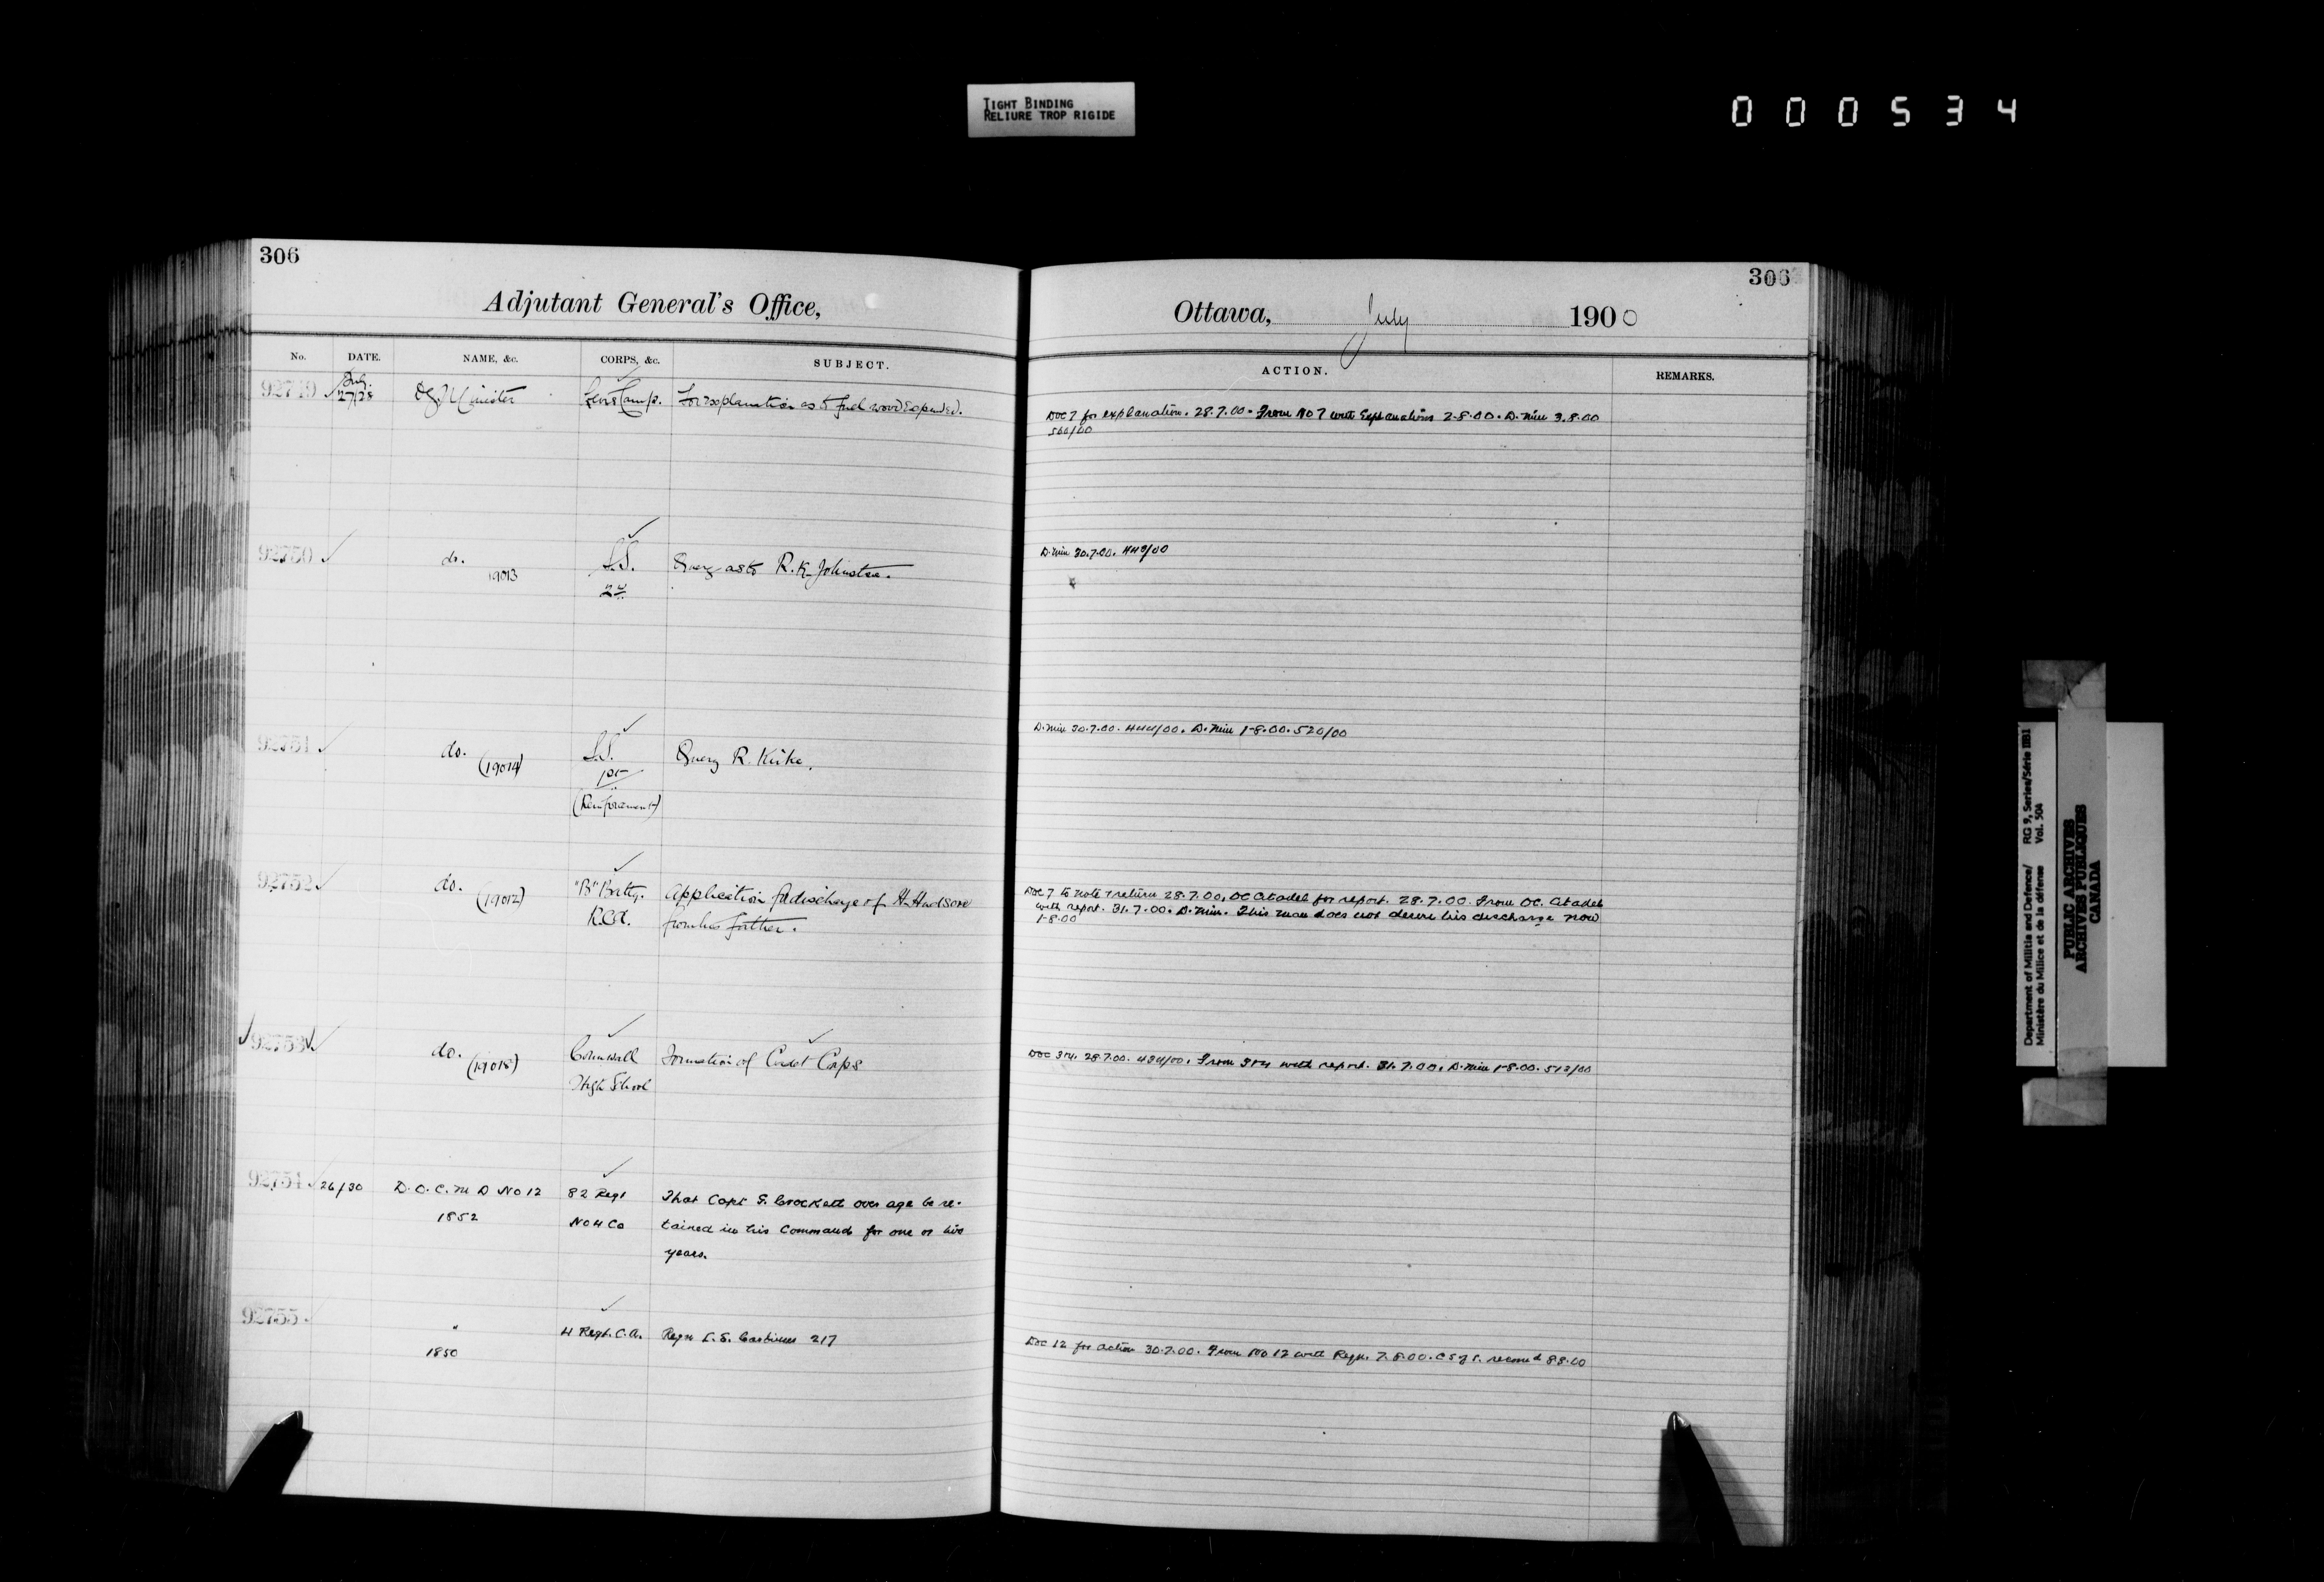 TIGHT BINDING
RELIURE TROP RIGIDE
000534
306
Adjutant General's Office,
No. DATE. NAME, &c. CORPS, &c. SUBJECT.
92749 July 27/28 Dy. Minister Levis Camp. For explanation as to fuel wood expended.
92750 do. 19013 S.S. Query as to R. K. Johnston.
2nd
92751 do. (19014) S.S. Query R. Kirke.
1st
(Reinforcement)
92752 do. (19012) "B" Batty. Application for discharge of H. Hudson
R.C.A. from his father.
92753 do. (19018) Cornwall Formation of Cadet Corps
High School
92754 26/30 D.O.C. M D No 12 82 Regt That Capt S. Crockett over age be re-
1852 No 4 Co tained in his Command for one or two
years.
92755 " 4 Regt. C.A. Reqn L. E. Carbines 217
1850
306
Ottawa, July 1900
ACTION. REMARKS.
DOC 7 for explanation. 28.7.00. From No 7 with Explanations 2-8-00. D. Min 3.8.00
560/00
D. Min 30.7.00. 443/00
D. Min 30.7.00. 444/00. D. Min 1-8.00. 520/00
DOC 7 to note & return 28.7.00. OC Citadel for report. 28.7.00. From OC. Citadel
with report. 31.7.00. D. Min. This man does not desire his discharge now
1-8.00
DOC 3&4. 28.7.00. 434/00. From 3&4 with report. 31.7.00. D. Min 1-8.00. 513/00
DOC 12 for action 30.7.00. From No 12 with Reqn. 7.8.00. C S of S. recomd 8.8.00
Department of Militia and Defence/ RG 9, Series/Série IIB1
Ministère du Milice et de la défense Vol. 504
PUBLIC ARCHIVES
ARCHIVES PUBLIQUES
CANADA